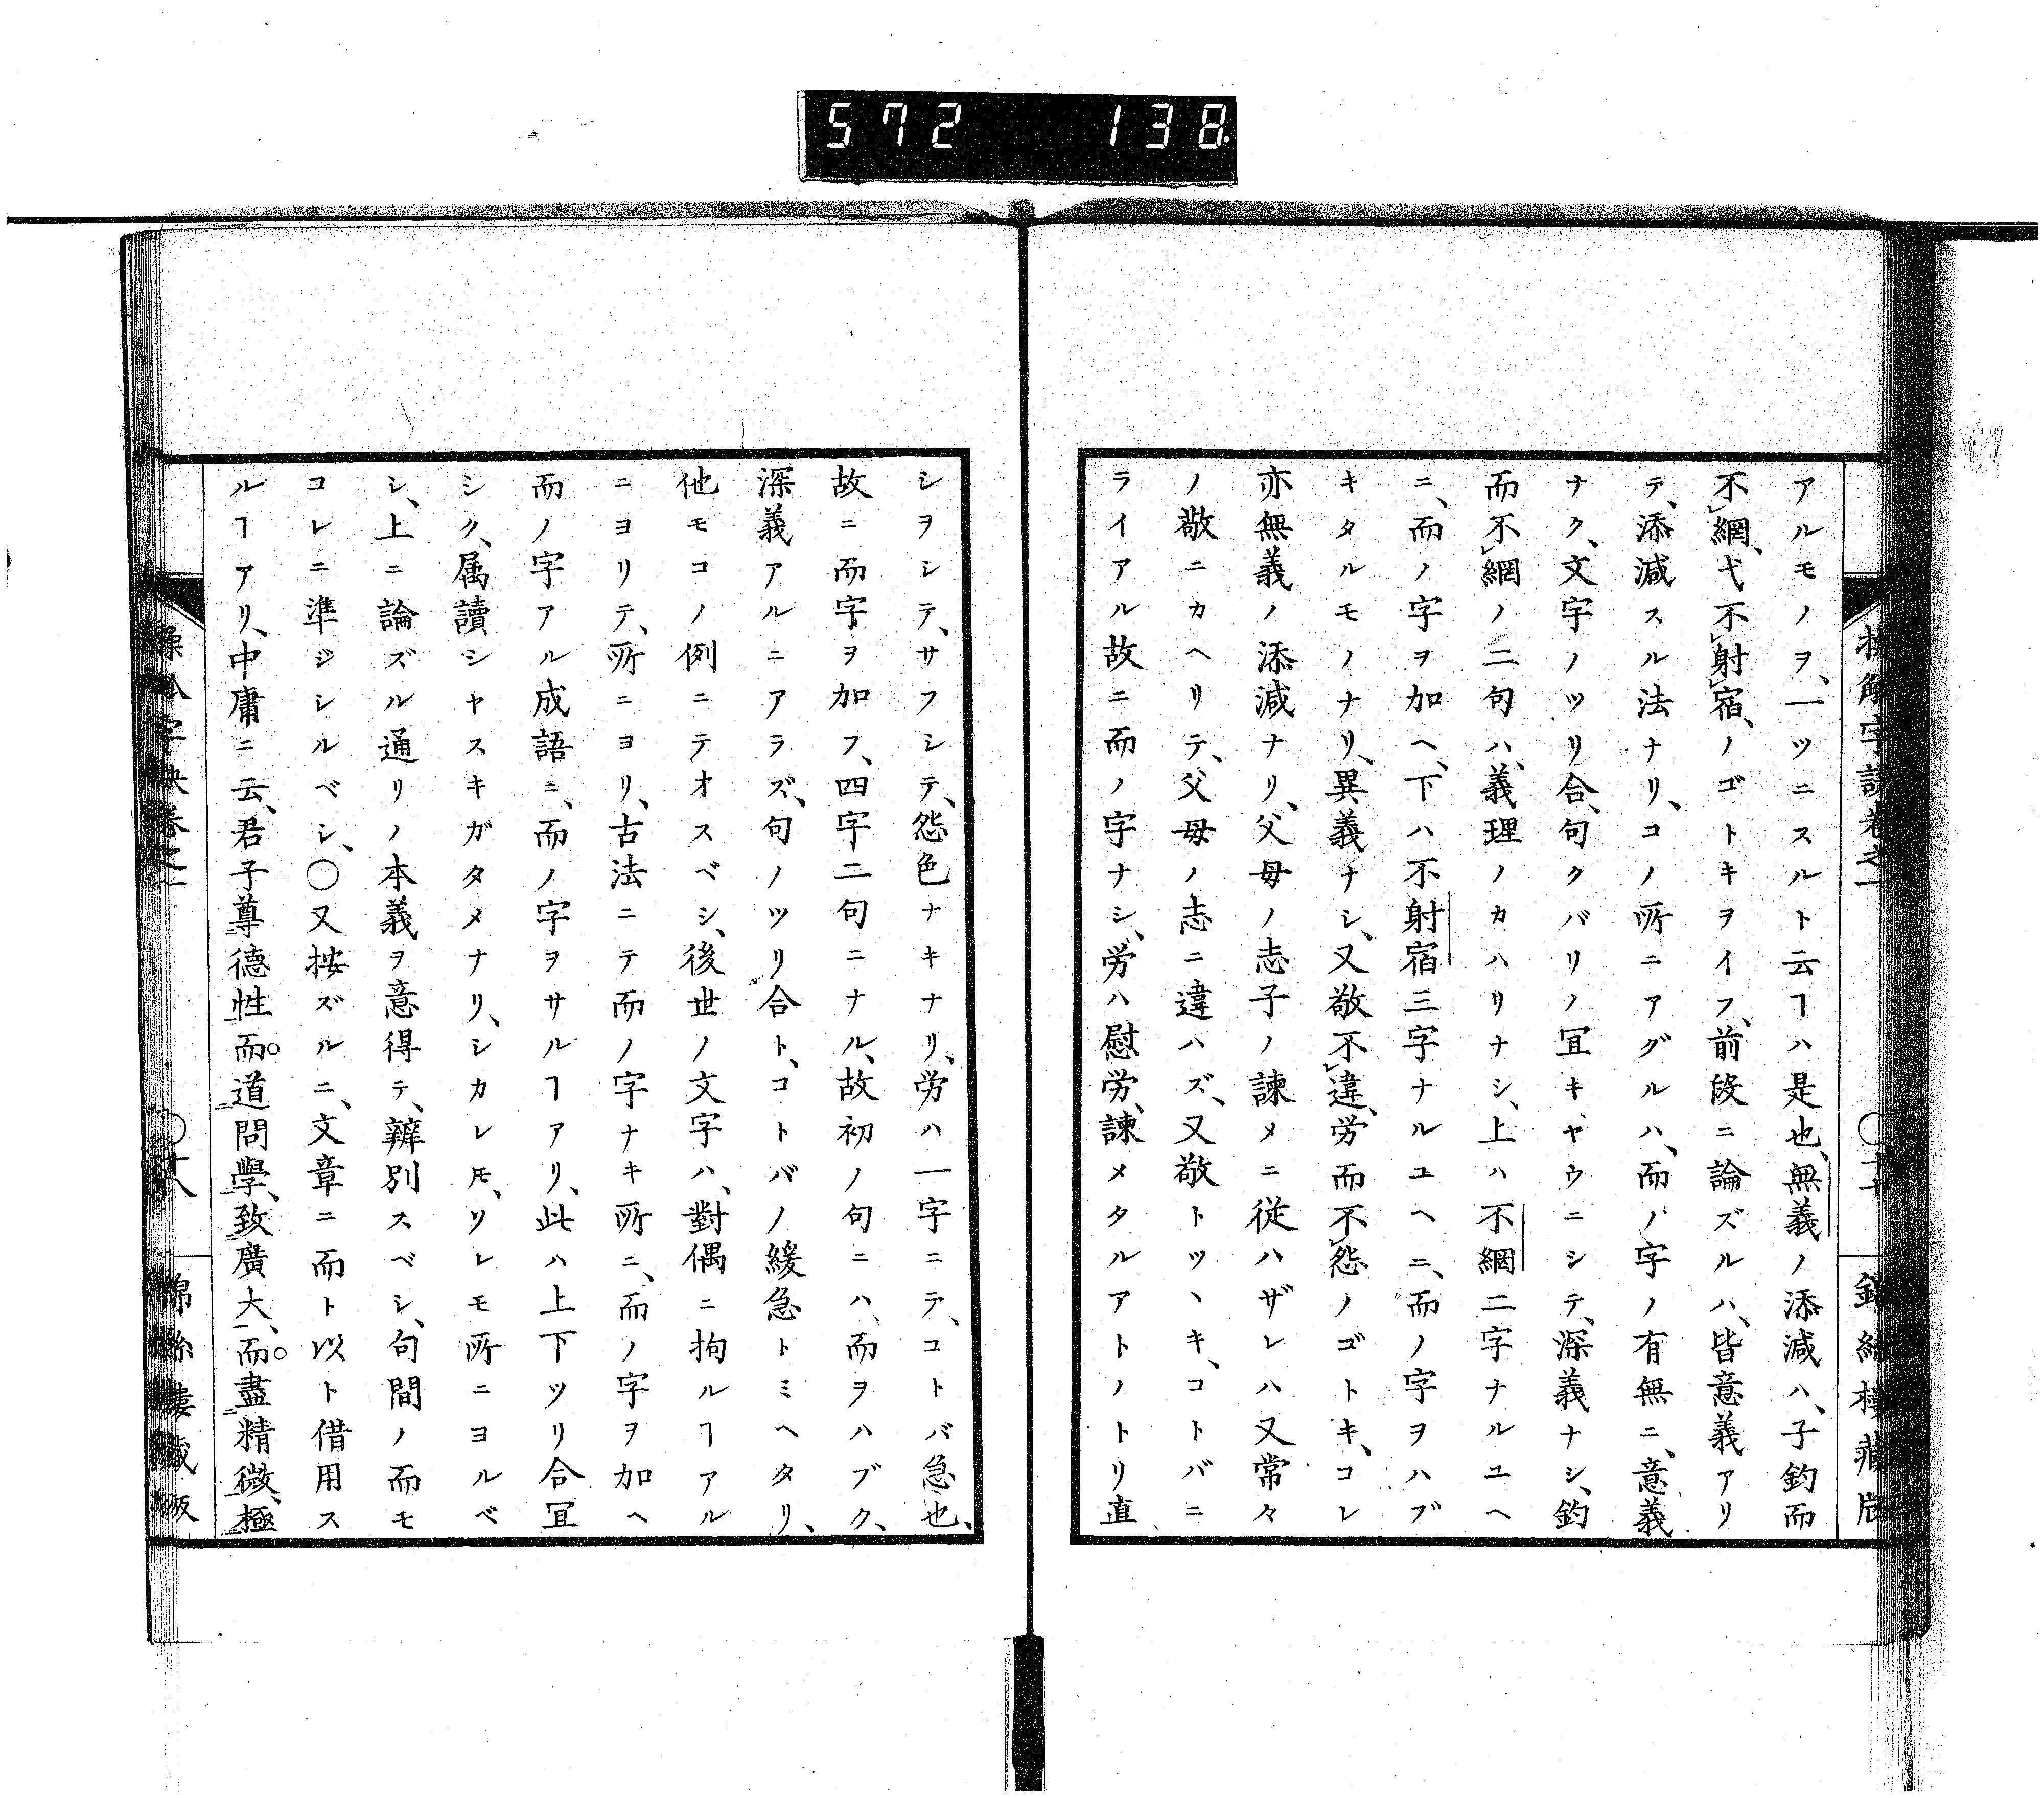 572 138
アルモノヲ、一ツニスルト云ヿハ是也、無義ノ添減ハ、子釣而
不網、弋不射宿、ノゴトキヲイフ、前段ニ論ズルハ、皆意義アリ
テ、添減スル法ナリ、コノ所ニアグルハ、而ノ字ノ有無ニ、意義
ナク、文字ノツリ合、句クバリノ冝キヤウニシテ、深義ナシ、釣
而不網ノ二句ハ、義理ノカハリナシ、上ハ不網二字ナルユヘ
ニ、而ノ字ヲ加ヘ、下ハ不射宿三字ナルユヘニ、而ノ字ヲハブ
キタルモノナリ、異義ナシ、又敬不違、労而不怨ノゴトキ、コレ
亦無義ノ添減ナリ、父母ノ志子ノ諫メニ従ハザレハ又常々
ノ敬ニカヘリテ、父母ノ志ニ違ハズ、又敬トツヽキ、コトバニ
ライアル故ニ而ノ字ナシ、労ハ慰労、諫メタルアトノトリ直
シヲシテ、サフシテ、怨色ナキナリ、労ハ一字ニテ、コトバ急也、
故ニ而字ヲ加フ、四字二句ニナル、故初ノ句ニハ、而ヲハブク、
深義アルニアラズ、句ノツリ合ト、コトバノ緩急トミヘタリ、
他モコノ例ニテオスベシ、後世ノ文字ハ、對偶ニ拘ルヿアル
ニヨリテ、所ニヨリ、古法ニテ而ノ字ナキ所ニ、而ノ字ヲ加ヘ
而ノ字アル成語ニ、而ノ字ヲサルヿアリ、此ハ上下ツリ合冝
シク、属讀シヤスキガタメナリ、シカレ𪜈、ソレモ所ニヨルベ
シ、上ニ論ズル通リノ本義ヲ意得テ、辨別スベシ、句間ノ而モ
コレニ準ジシルベシ、〇又按ズルニ、文章ニ而ト以ト借用ス
ルヿアリ、中庸ニ云、君子尊德性而道問學、致廣大、而盡精微、極